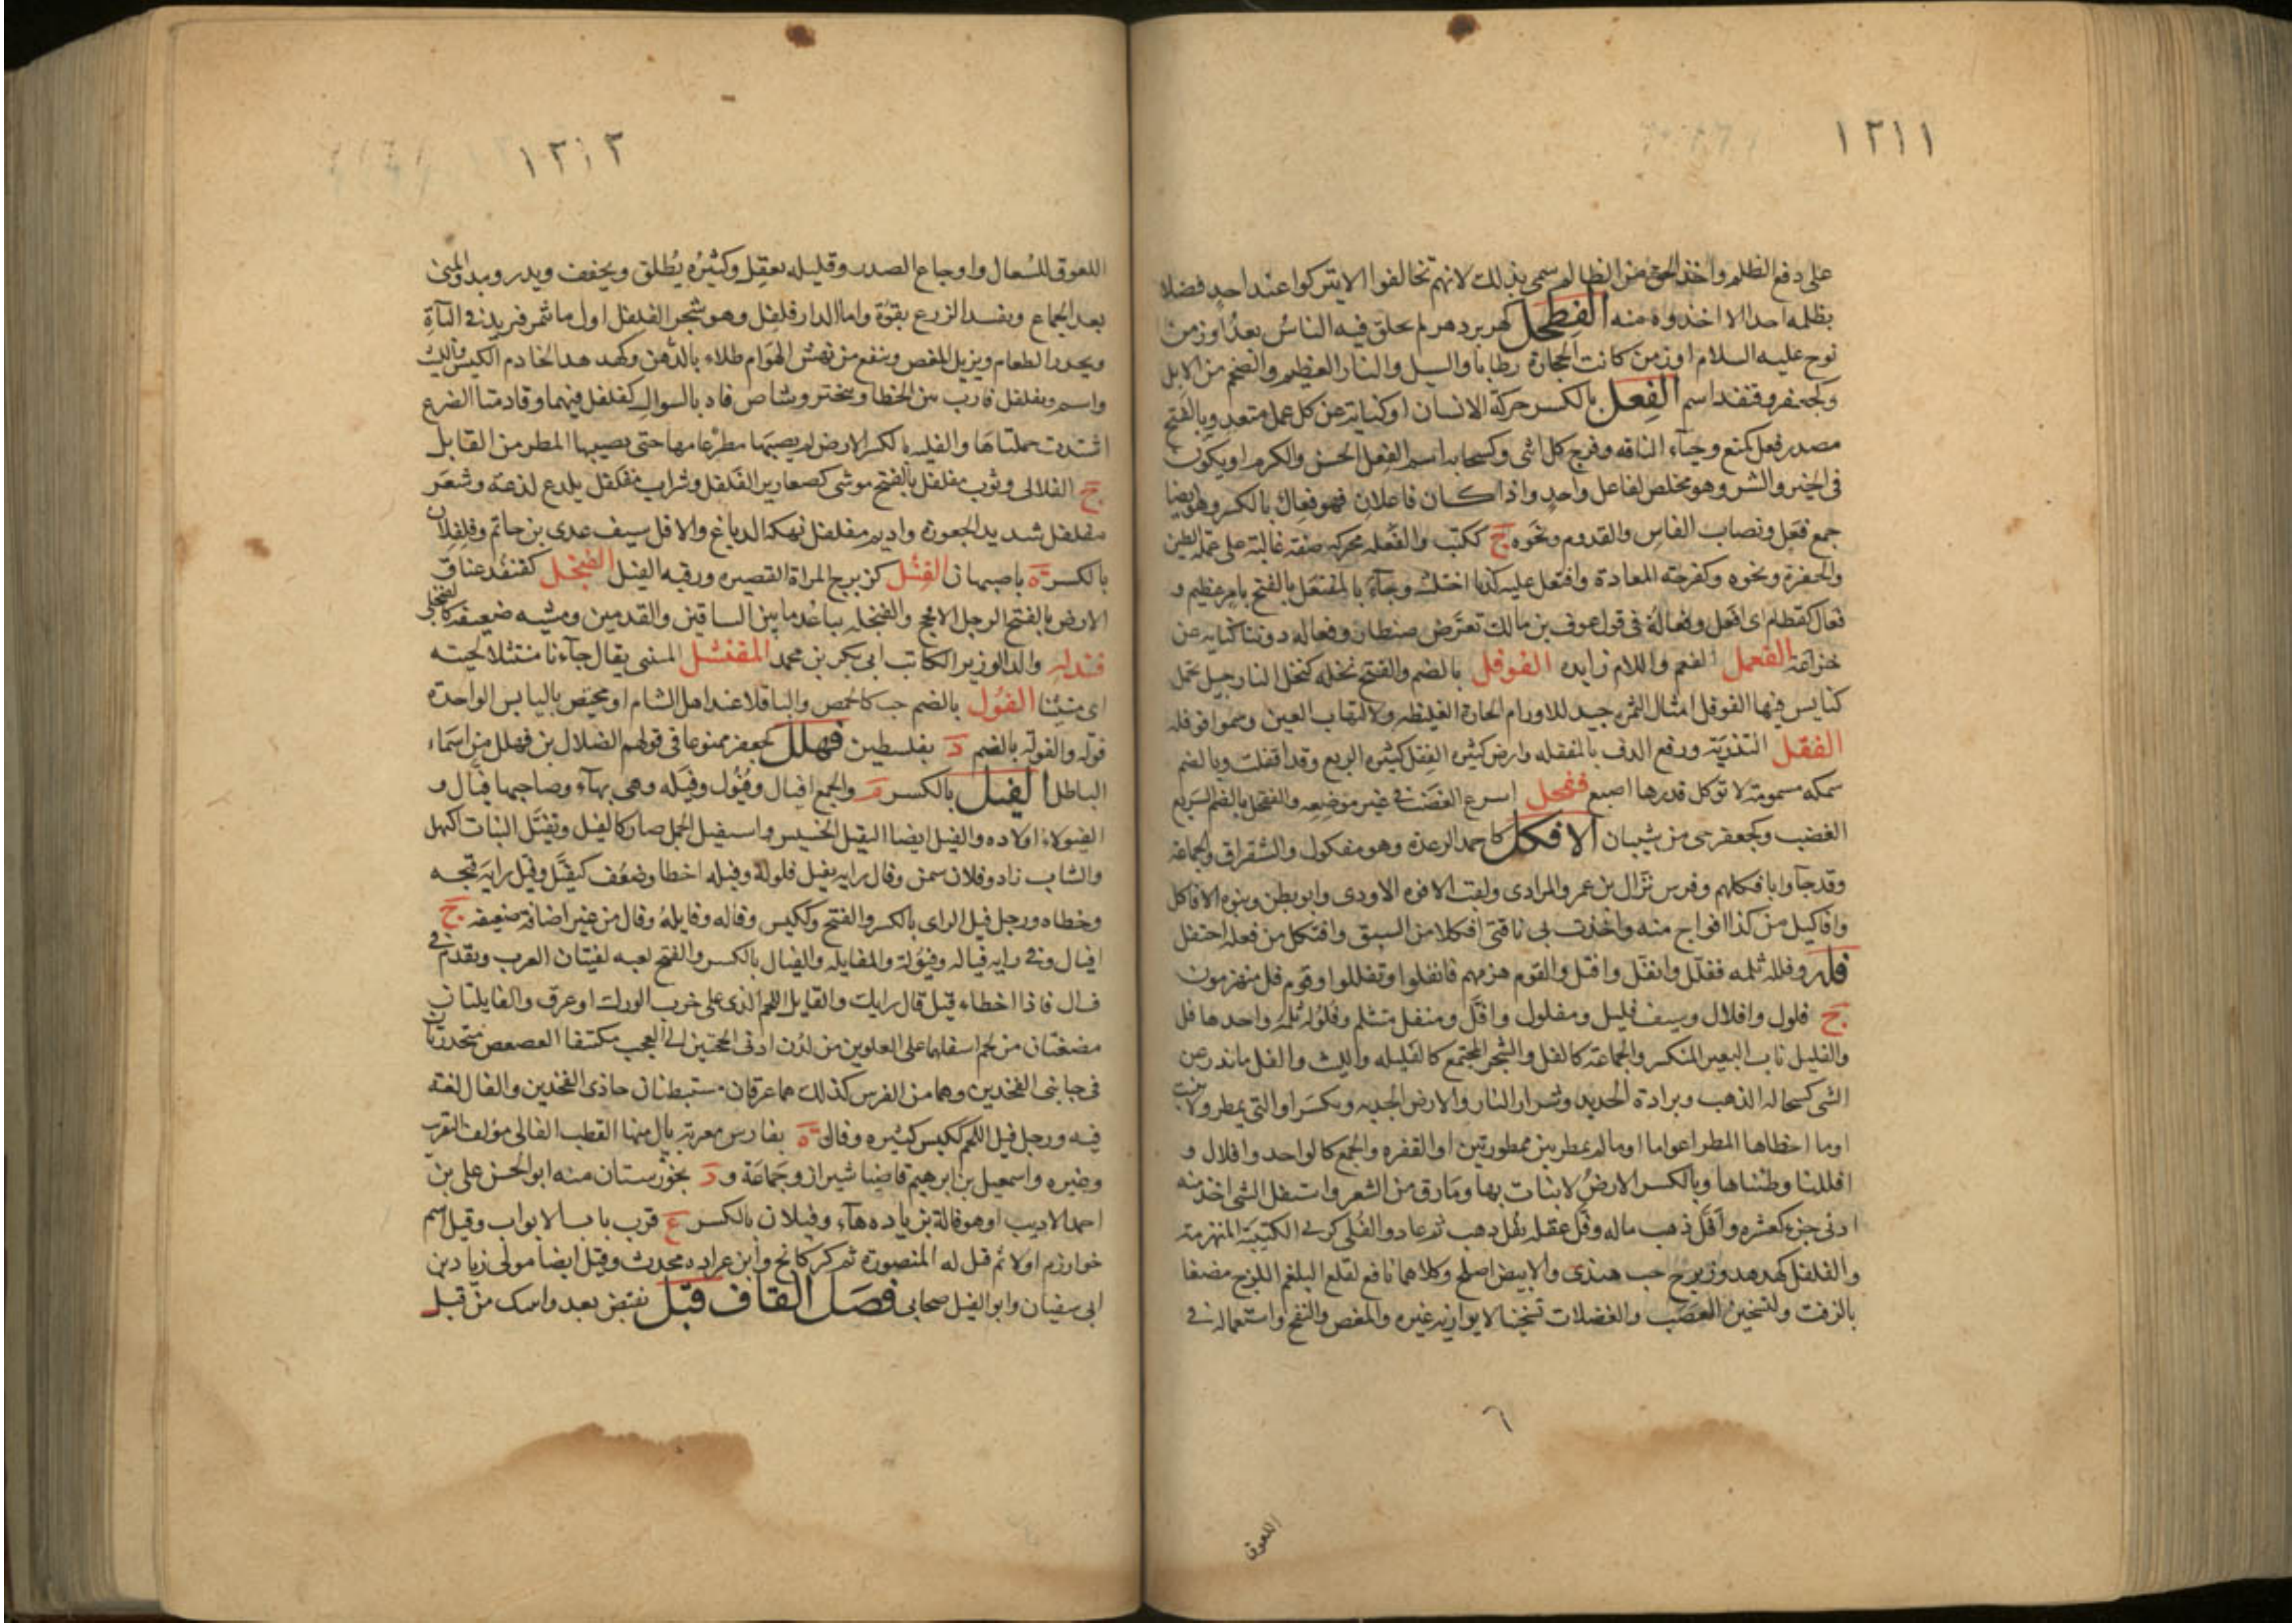 ١٢١١
على دفع الظلم واخذ الحق من الظالم سمى بذلك لانهم تحالفوا الا يتركوا عند احد فضلا
يظلمه احدا الا اخذوه منه الفِطَحل كهزبر دهر لم يخلق فيه الناسُ بعدُ اوزمن
نوح عليه السلام اوزمن كانت الحجارة رطابا والسيل والتار العظيم والضخم من الابل
وكجعفر وقنفذ اسم الفِعل بالكسر حركة الانسان اوكناية عن كل عمل متعد وبالفتح
مصدر فعل كمنع وحياء الناقه وفرج كل انثى وكسحابه اسم الفِعل الحسن والكرم اويكون
فى الخير والشر وهو مخلص لفاعل واحدٍ واذا كان فاعلان فهو فِعال بالكسر وهو ايضا
جمع فَعل ونصاب الفاس والقدوم ونحوه ج ككتب والفَعله محركه صفة غالبة على عملة الطين
والحفرة ونحوه وكفرحة العادة وافتعل عليه كذبا اختلقه وجآءَ بالمفتعَل بالفتح بامر عظيم و
فعال كقطام اى افعل وفعالة فى قول عوف بن مالك تعرّض ضيطار وفعاله دوننا كناية عن
خزاعة الفعمل الفعم واللام زايده الفوفل بالضم والفتح نخله كنخل النارجيل تحمل
كبايس فيها الفوفل امثال التمر جيد للاورام الحارة الغليظه ولالتهاب العين وسموا فوفله
الفقل التذرية ورفع الدق بالمفقله وارض كثيره الفِقل كثيره الريع وقد افقلت وبالضم
سمكه مسمومة لا توكل قدرها اصبع فقحل اسرع الغضب فى غير موضعه والفقحل بالضم السريع
الغضب وكجعفر حى من شيبان الافكل كاحمد الرعدة وهو مفكول والشقراق والجماعة
وقد جآوا بافكلهم وفرس نزال بن عمرو المرادى ولقب الافوه الاودى وابو بطن وبنوه الافاكل
وافاكيل من كذا افواج منه واخذت بى ناقتى افكلا من السبق وافتكل من فعله احتفل
فله وفلله ثلمه ففلّل وانفلّ وافتلّ والقوم هزمهم فانفلوا وتفللوا وقوم فل منهزمون
ج فلول وافلال وسيف فليل ومفلول وافلّ ومنفل متثلم وفلوله ثلمه واحدها فل
والفليل ناب البعير المنكسر والجماعة كالفل والشجر المجتمع كالفليله والليف والفل ماندر عن
الشى كسحالة الذهب وبرادة الحديد وشرار النار والارض الجدبه ويكسَر اوالتى تمطر ولا تنبت
اوما اخطاها المطر اعواما اومالم يمطر بين ممطورتين اوالقفره والجمع كالواحد وافلال و
افللنا وطئناها وبالكسر الارضُ لا نبات بها ومارق من الشعر واستفل الشى اخذ منه
ادنى جزء كعشره وافلّ ذهب ماله وفلّ عقله يفل ذهب ثم عاد والفُلى كربى الكتيبة المنهزمة
والفلفل كهدهد وزبرج حب هندى والابيض اصلح وكلاهما نافع لقلع البلغم اللزج مضغا
بالزفت ولتسخين العصب والعضلات تسخينا لايوازيه غيره والمغص والنفخ واستعماله فى
٦
اللعوق
١٢١٢
اللعوق للسُعال واوجاع الصدر وقليله يعقِل وكثيرُه يُطلق ويجفف ويدر ويبد المنى
بعد الجماع ويفسد الزرع بقوّة واماالدار فلفِل وهو شجر الفلفل اول ما يثمر فيزيد فى الباءة
ويحدر الطعام ويزيل المغص وينفع من نهش الهَوام طلاء بالدُهن وكهدهد الخادم الكيس واللبث
واسم وتفلفل قارب بين الخطا وتبختر وشاص فاه بالسواك كفلفل فيهما وقادمتا الضرع
اشتدت حملتاهَا والفليه بالكسر الارض لم يصبها مطر عامها حتى يصيبها المطر من القابل
ج الفلالى وثوب مفلفل بالفتح موشى كصعارير الفلفل وشراب مفلفل يلدع لذعه وشعَر
مفلفل شديد الجعوده واديم مفلفل نهكه الدباغ والافل سيف عدى بن حاتم وفلفلان
بالكسر ة باصبهان الفِنْئل كزبرج المراة القصيره ورقبه الفيل الفنجل كقنفذ عناق
الارض بالفتح الرجل الافحج والفنجله تباعد ما بين الساقين والقدمين ومشيه ضعيفه كالفنجلى
فندلة والد الوزير الكاتب ابى بكر بن محمد المفنشل المسنى يقال جآءنا منتثلا لحيته
الفُول بالضم حب كالحمص والباقلا عند اهل الشام اومختص باليابس الواحدة
فولة والفولة بالضم د بفلسطين فهلل كجعفر ممنوعا فى قولهم الضلال بن فهلل من اسماء
الباطل الفيل بالكسر م والجمع افيال وفُيُول وفيَله وهى بهآء وصاحبها فيّال و
الفيولاء اولاده والفيل ايضا الثقيل الخسيس واستفيل الجمل صار كالفيل وتفيّل النبات اكتهل
والشاب زاد وفلان سمن وفال رايه يفيل فيلولة وفيله اخطا وضعُف كتفيَّل وفيّل رايَه قبحه
وخطاه ورجل فيل الراى بالكسر والفتح وككيس وفاله وفايله وفال من غير اضافة ضعيفه ج
افيال وفى رايه فياله وفيُولة والمفايله والفيال بالكسر والفتح لعبه لفتيان العرب وتقدم فى
فال فاذا اخطاء قيل فال رايك والفايل اللحم الذى على خرب الورك اوعرق والفايلتان
مضغتان من لحم اسفلهما على الصلوين من لدُن ادنى الحجبتين الى العجب مكتنفا العصعص منحدرتان
فى جانبى الفخذين وهما من الفرس كذلك هما عرقان مستبطنان حاذى الفخذين والفال لغة
فيه ورجل فيل اللحم ككيس كثيره وفال ة بفارس معربة بال منها القطب الفالى مؤلف التقريب
وغيره واسمعيل بن ابرهيم قاضيا شيراز وجماعة و د بخوزستان منه ابو الحسن على بن
احمد الاديب اوهو فالة بزيادة هآء وفيلان بالكسر ع قرب باب الابواب وفيل اسم
خوارزم اولا ثم قيل له المنصورة ثم كركانج وابن عراده محدث وفيل ايضا مولى زياد بن
ابى سفيان وابو الفيل صحابى فصَل القاف قبَل نقيض بعد واتيتك من قبل